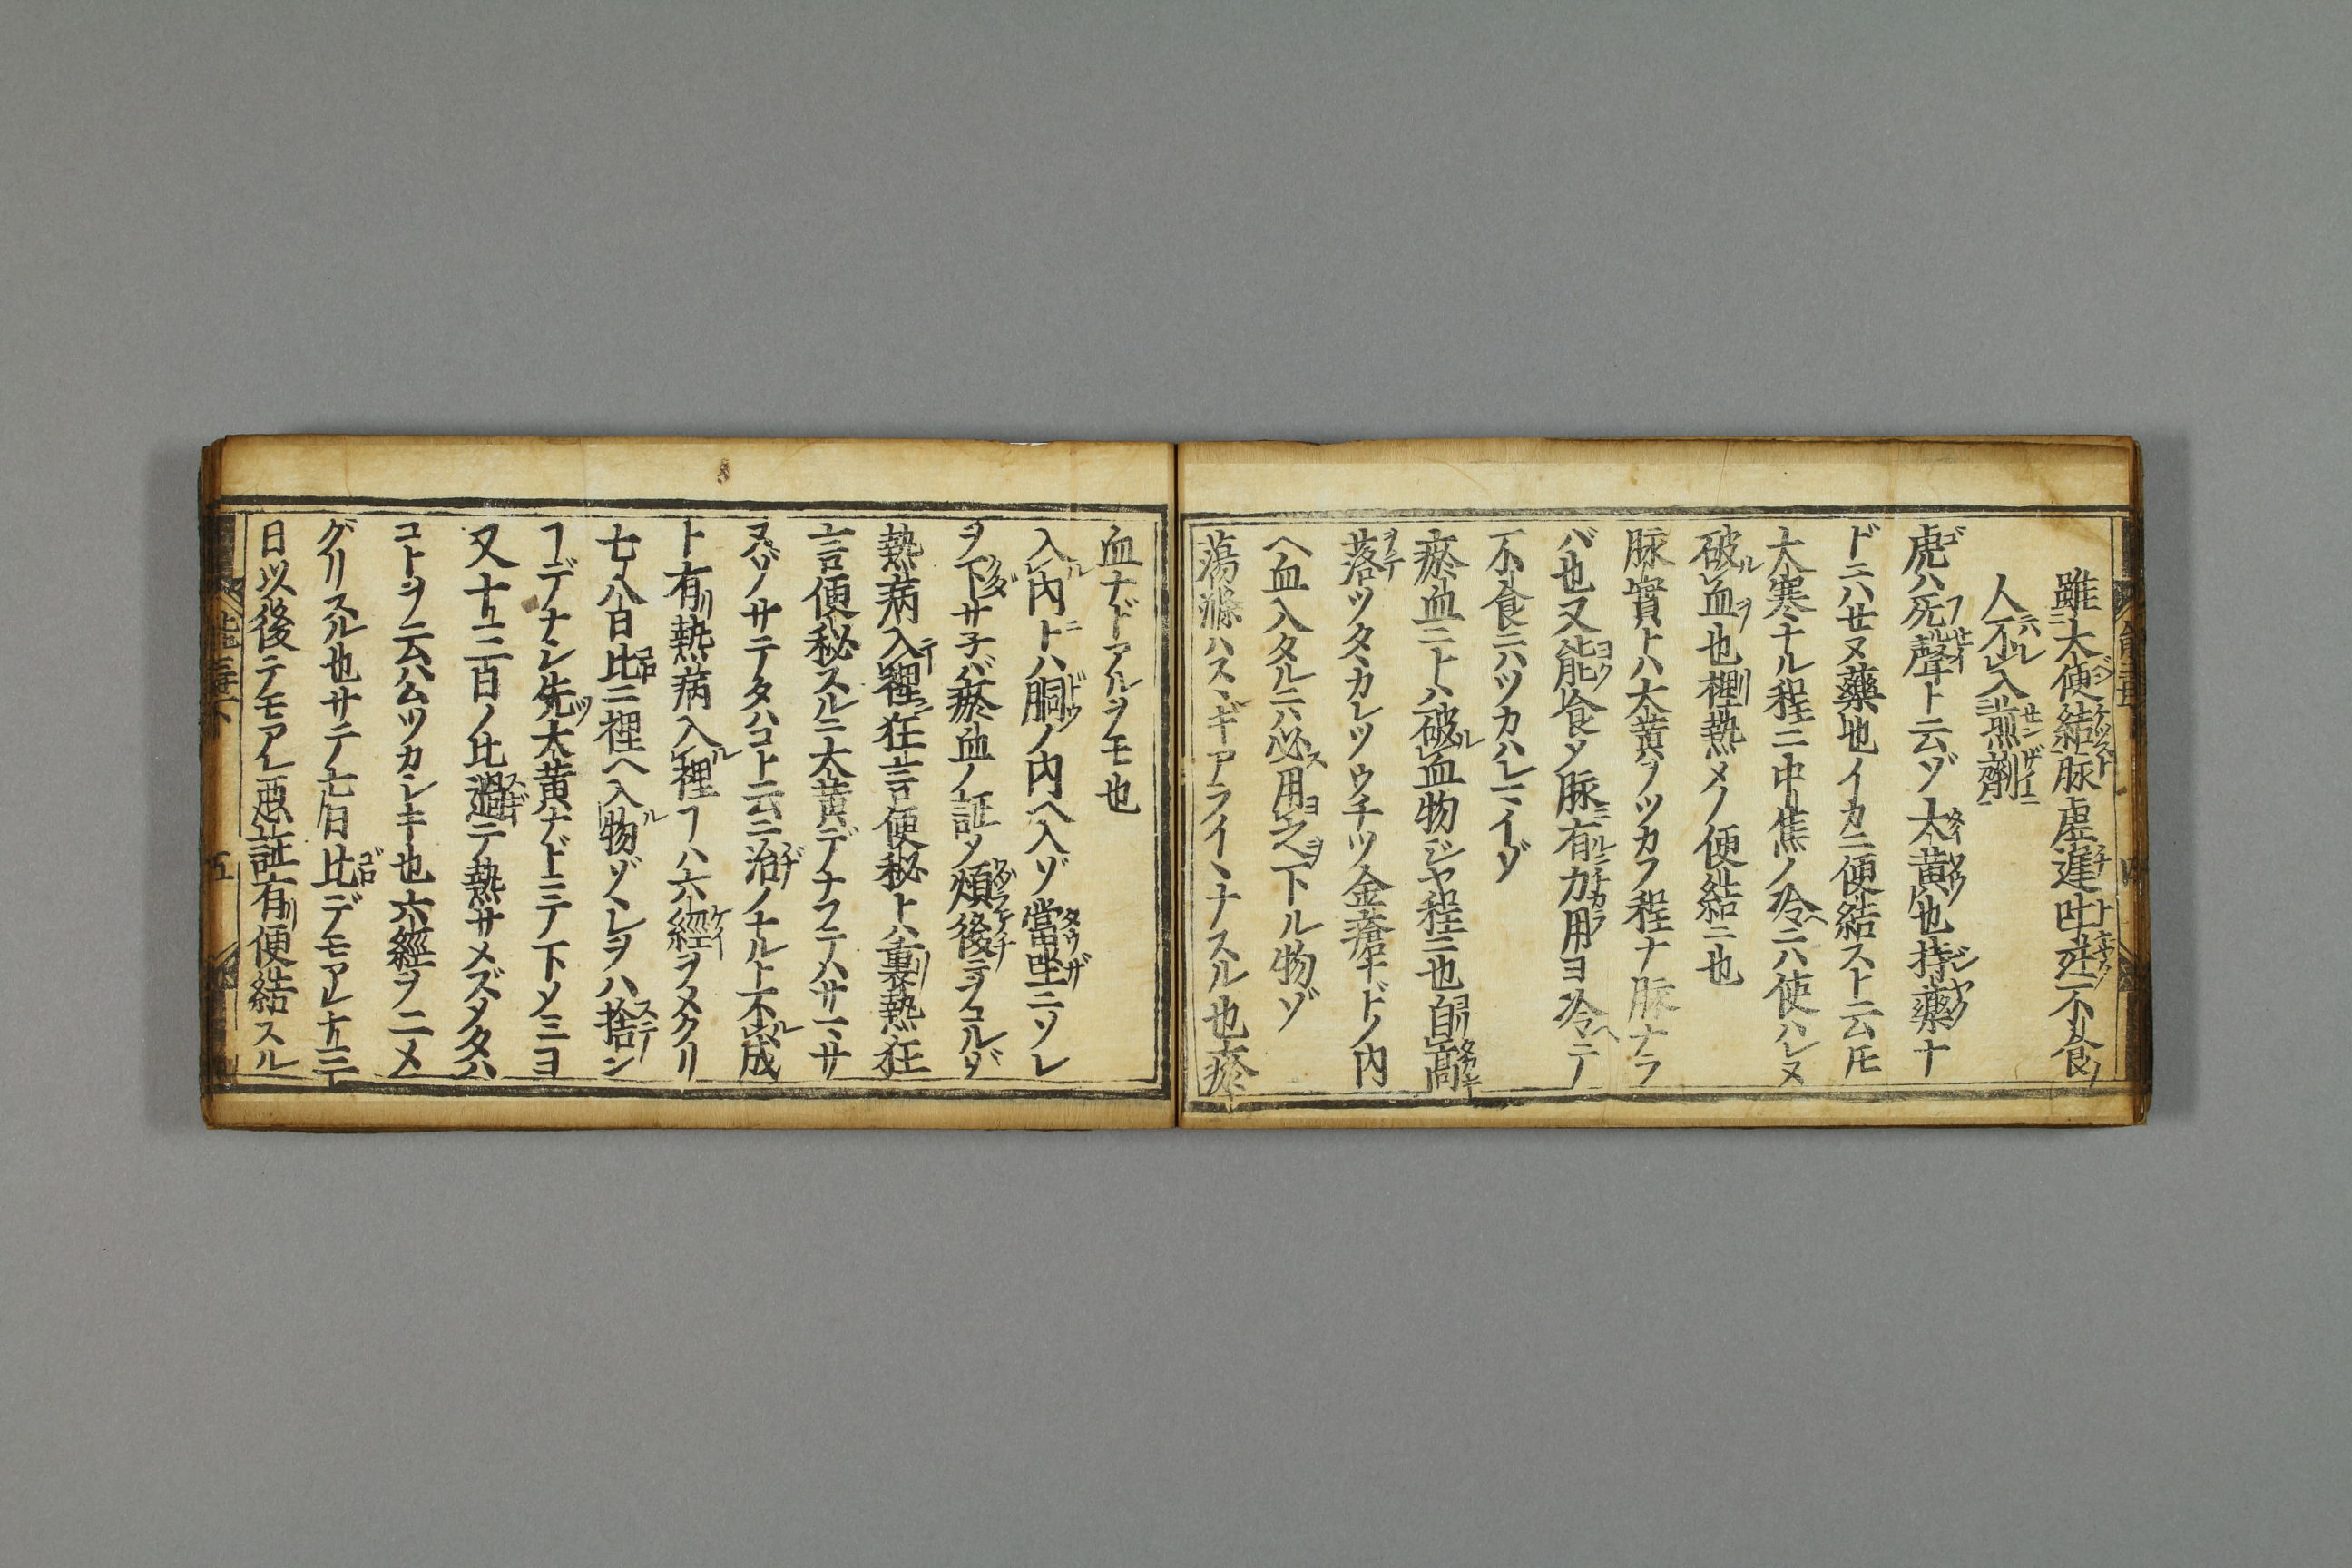 雖大便結脉虚遲吐逆不食
人不入煎劑
虎ハ死聲ト云ゾ大黄也持藥ナ
ドニハせヌ藥也イカニ便結スト云𪜈
大寒ナル程ニ中焦ノ冷ニハ使ハレヌ
破血也裡熱メノ便結ニ也
脉實トハ大黄ノツカフ程ナ脉ナラ
バ也又能食メ脉有力用ヨ冷テ
不食ニハツカハレマイゾ
瘀血ニトハ破血物ジヤ程ニ也自高
落ツタヽカレツウチツ金瘡ナドノ内
ヘ血入タルニハ必用之下ル物ゾ
蕩滌ハスヽギアライヽナスル也瘀
血ナドアルヲモ也
入内トハ胴ノ内ヘ入ゾ當坐ニソレ
ヲ下サ子バ瘀血ノ証メ煩後ニヲコルゾ
熱病入裡狂言便秘トハ裏熱狂
言便秘スルニ大黄デナフテハサマヽサ
ヌゾサテタハコト云ニ治ノナルト不成
ト有熱病入裡ヿハ六經ヲメクリ
七八日比ニ裡ヘ入物ゾソレヲハ捨ン
ヿデナシ先大黄ナドニテ下ソミヨ
又十二三日ノ比過テ熱サメズメタハ
コトヲ云ハムツカシキ也六經ヲ二メ
グリスル也サテ七日比デモアレ十二三
日以後ニテモアレ惡証有便結スル
能毒下
五